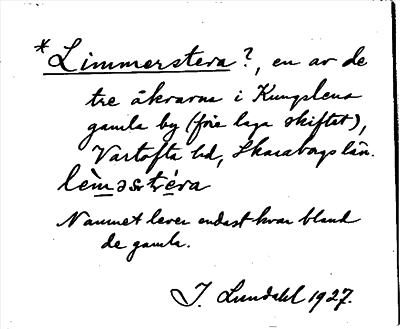 *Limmerstera?, en av de
tre åkrarna i Kungslena
gamla by (före laga skiftet),
Vartofta hd, Skaraborgs län.
lèməstéra
Namnet lever endast kvar bland
de gamla.
I. Lundahl 1927.